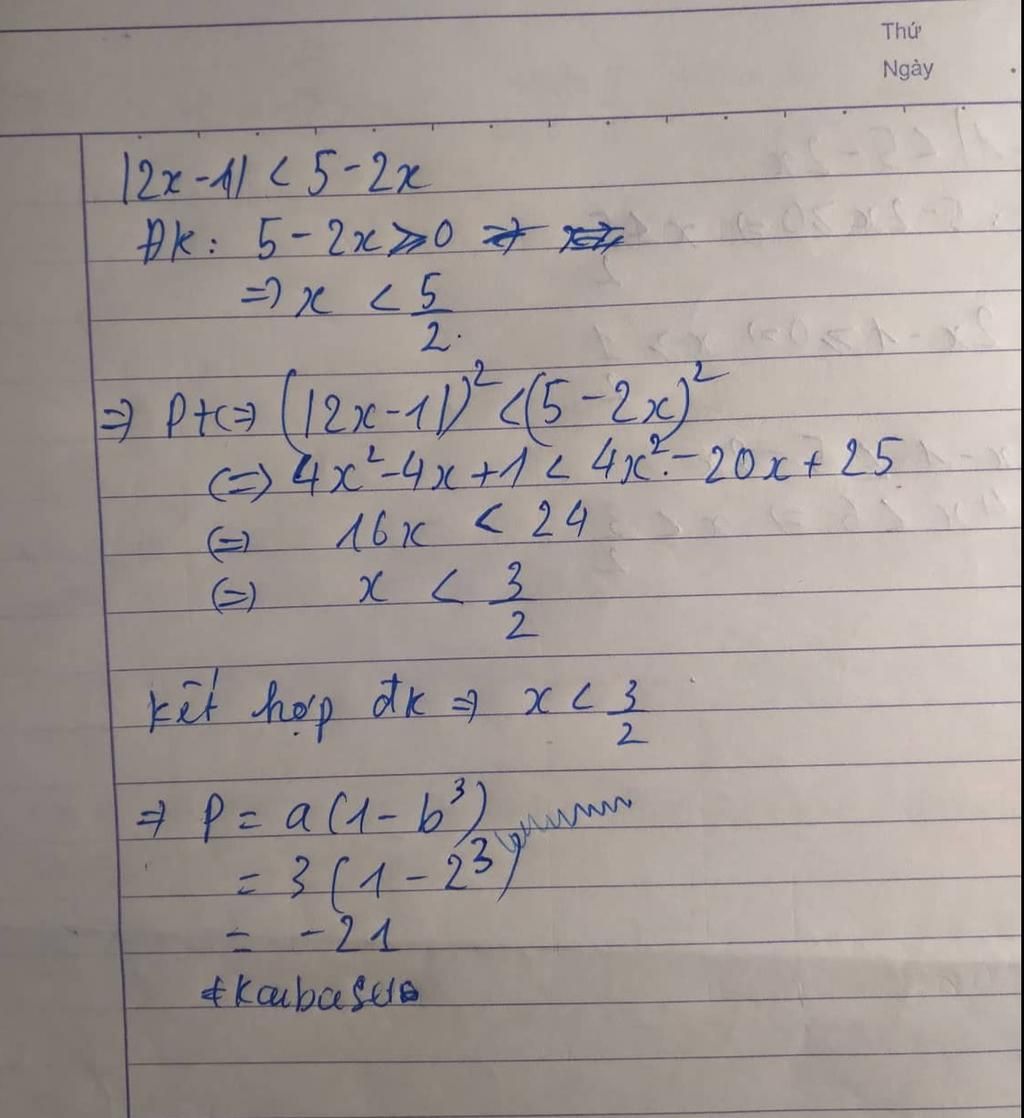 Thứ
Ngày
|2x-1| < 5-2x
Đk: 5-2x ≥ 0
=> x < 5/2.
=> Pt<=> (|2x-1|)² < (5-2x)²
<=> 4x²-4x+1 < 4x²-20x+25
<=> 16x < 24
<=> x < 3/2
kết hợp đk => x < 3/2
=> P = a(1-b³)
= 3(1-2³)
= -21